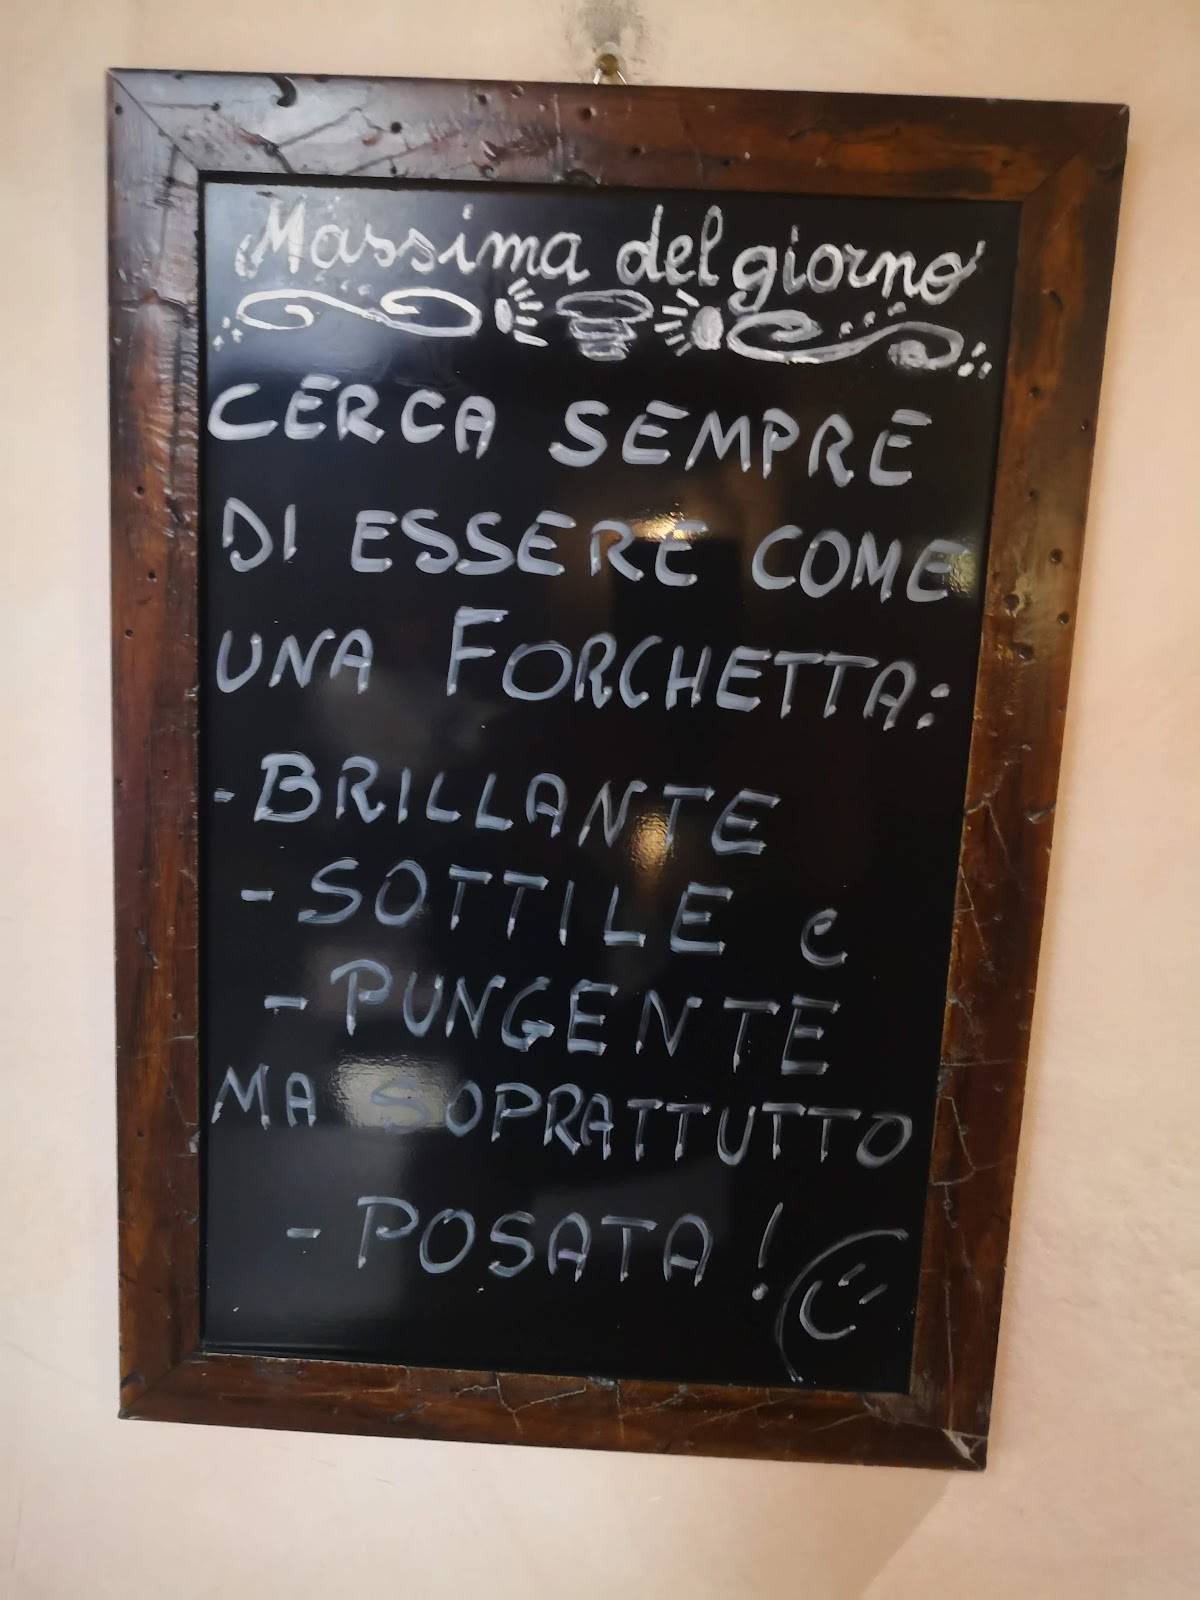 Massima del giorno
CERCA SEMPRE
DI ESSERE COME
UNA FORCHETTA:
- BRILLANTE
- SOTTILE e
- PUNGENTE
MA SOPRATTUTTO
- POSATA!